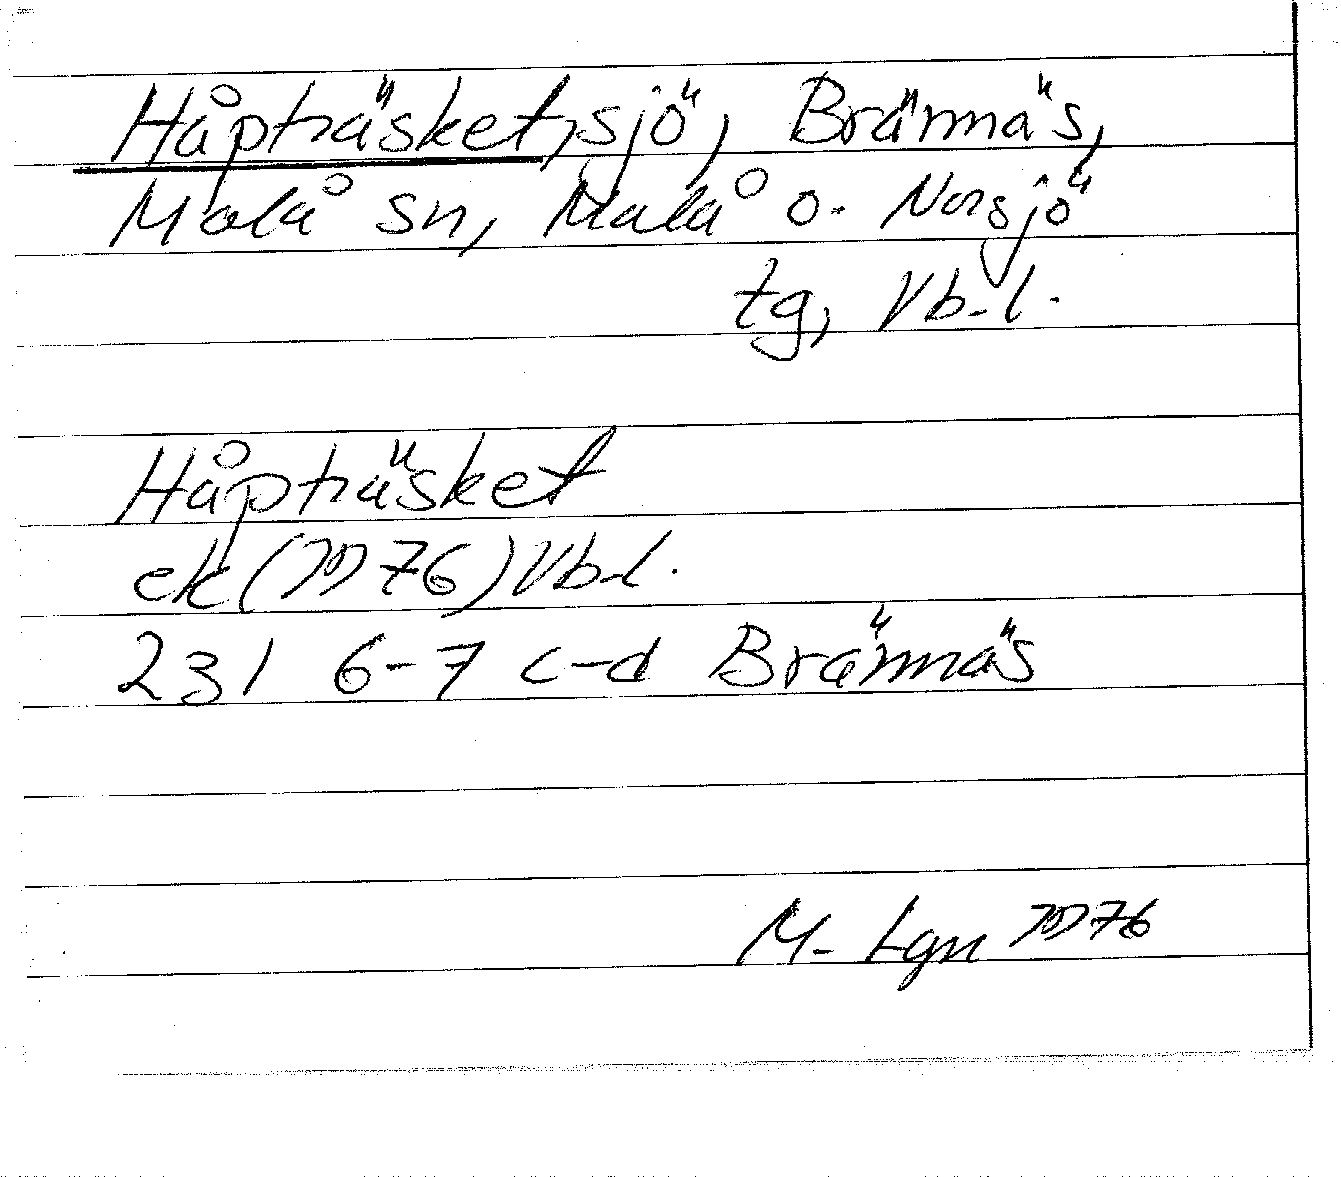 Håpträsket, sjö, Brännäs,
Malå sn, Malå o. Norsjö
tg, Vb. l.
Håpträsket
ek (1976) Vb. l.
231 6-7 c-d Brännäs
M. Lgn 1976